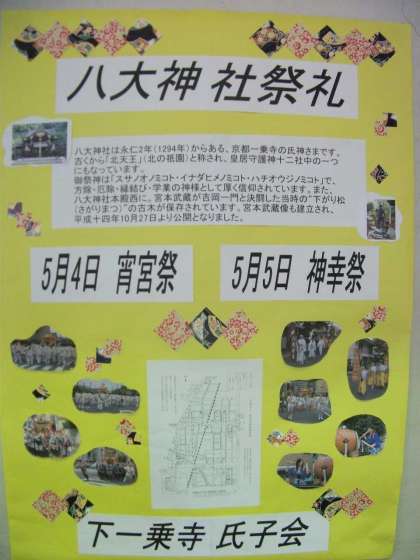 八大神社祭礼
八大神社は永仁2年(1294年)からある、京都一乗寺の氏神さまです。
古くから「北天王」(北の祇園)と称され、皇居守護神十二社中の一つ
にもなっています。
御祭神は「スサノオノミコト・イナダヒメノミコト・ハチオウジノミコト」で、
方除・厄除・縁結び・学業の神様として厚く信仰されています。また、
八大神社本殿西に。宮本武蔵が吉岡一門と決闘した当時の"下がり松
(さがりまつ)"の古木が保存されています。宮本武蔵像も建立され、
平成十四年10月27日より公開となりました。
5月4日 宵宮祭
5月5日 神幸祭
下一乗寺 氏子会